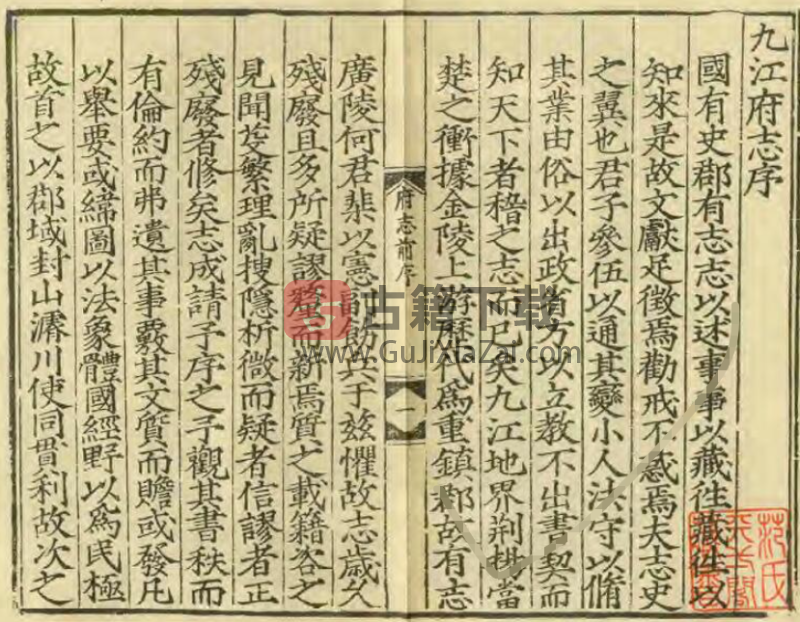 九江府志序
國有史郡有志志以述事事以藏徃藏徃以
知來是故文獻足徴焉勸戒不惑焉夫志史
之翼也君子參伍以通其變小人法守以脩
其業由俗以出政省方以立教不出書契而
知天下者稽之志而已矣九江地界荆楊當
楚之衝據金陵上游歴代爲重鎮郡故有志
府志前序
一
廣陵何君棐以憲副飭兵于兹懼故志歲久
殘廢且多所疑謬釐而新焉質之載籍咨之
見聞芟繁理亂搜隱析微而疑者信謬者正
殘廢者修矣志成請予序之予觀其書秩而
有倫約而弗遺其事覈其文質而贍或發凡
以舉要或緯圖以法象體國經野以爲民極
故首之以郡域封山濬川使同貫利故次之
范氏
天一閣
古籍下载
www.GuJiXiaZai.com